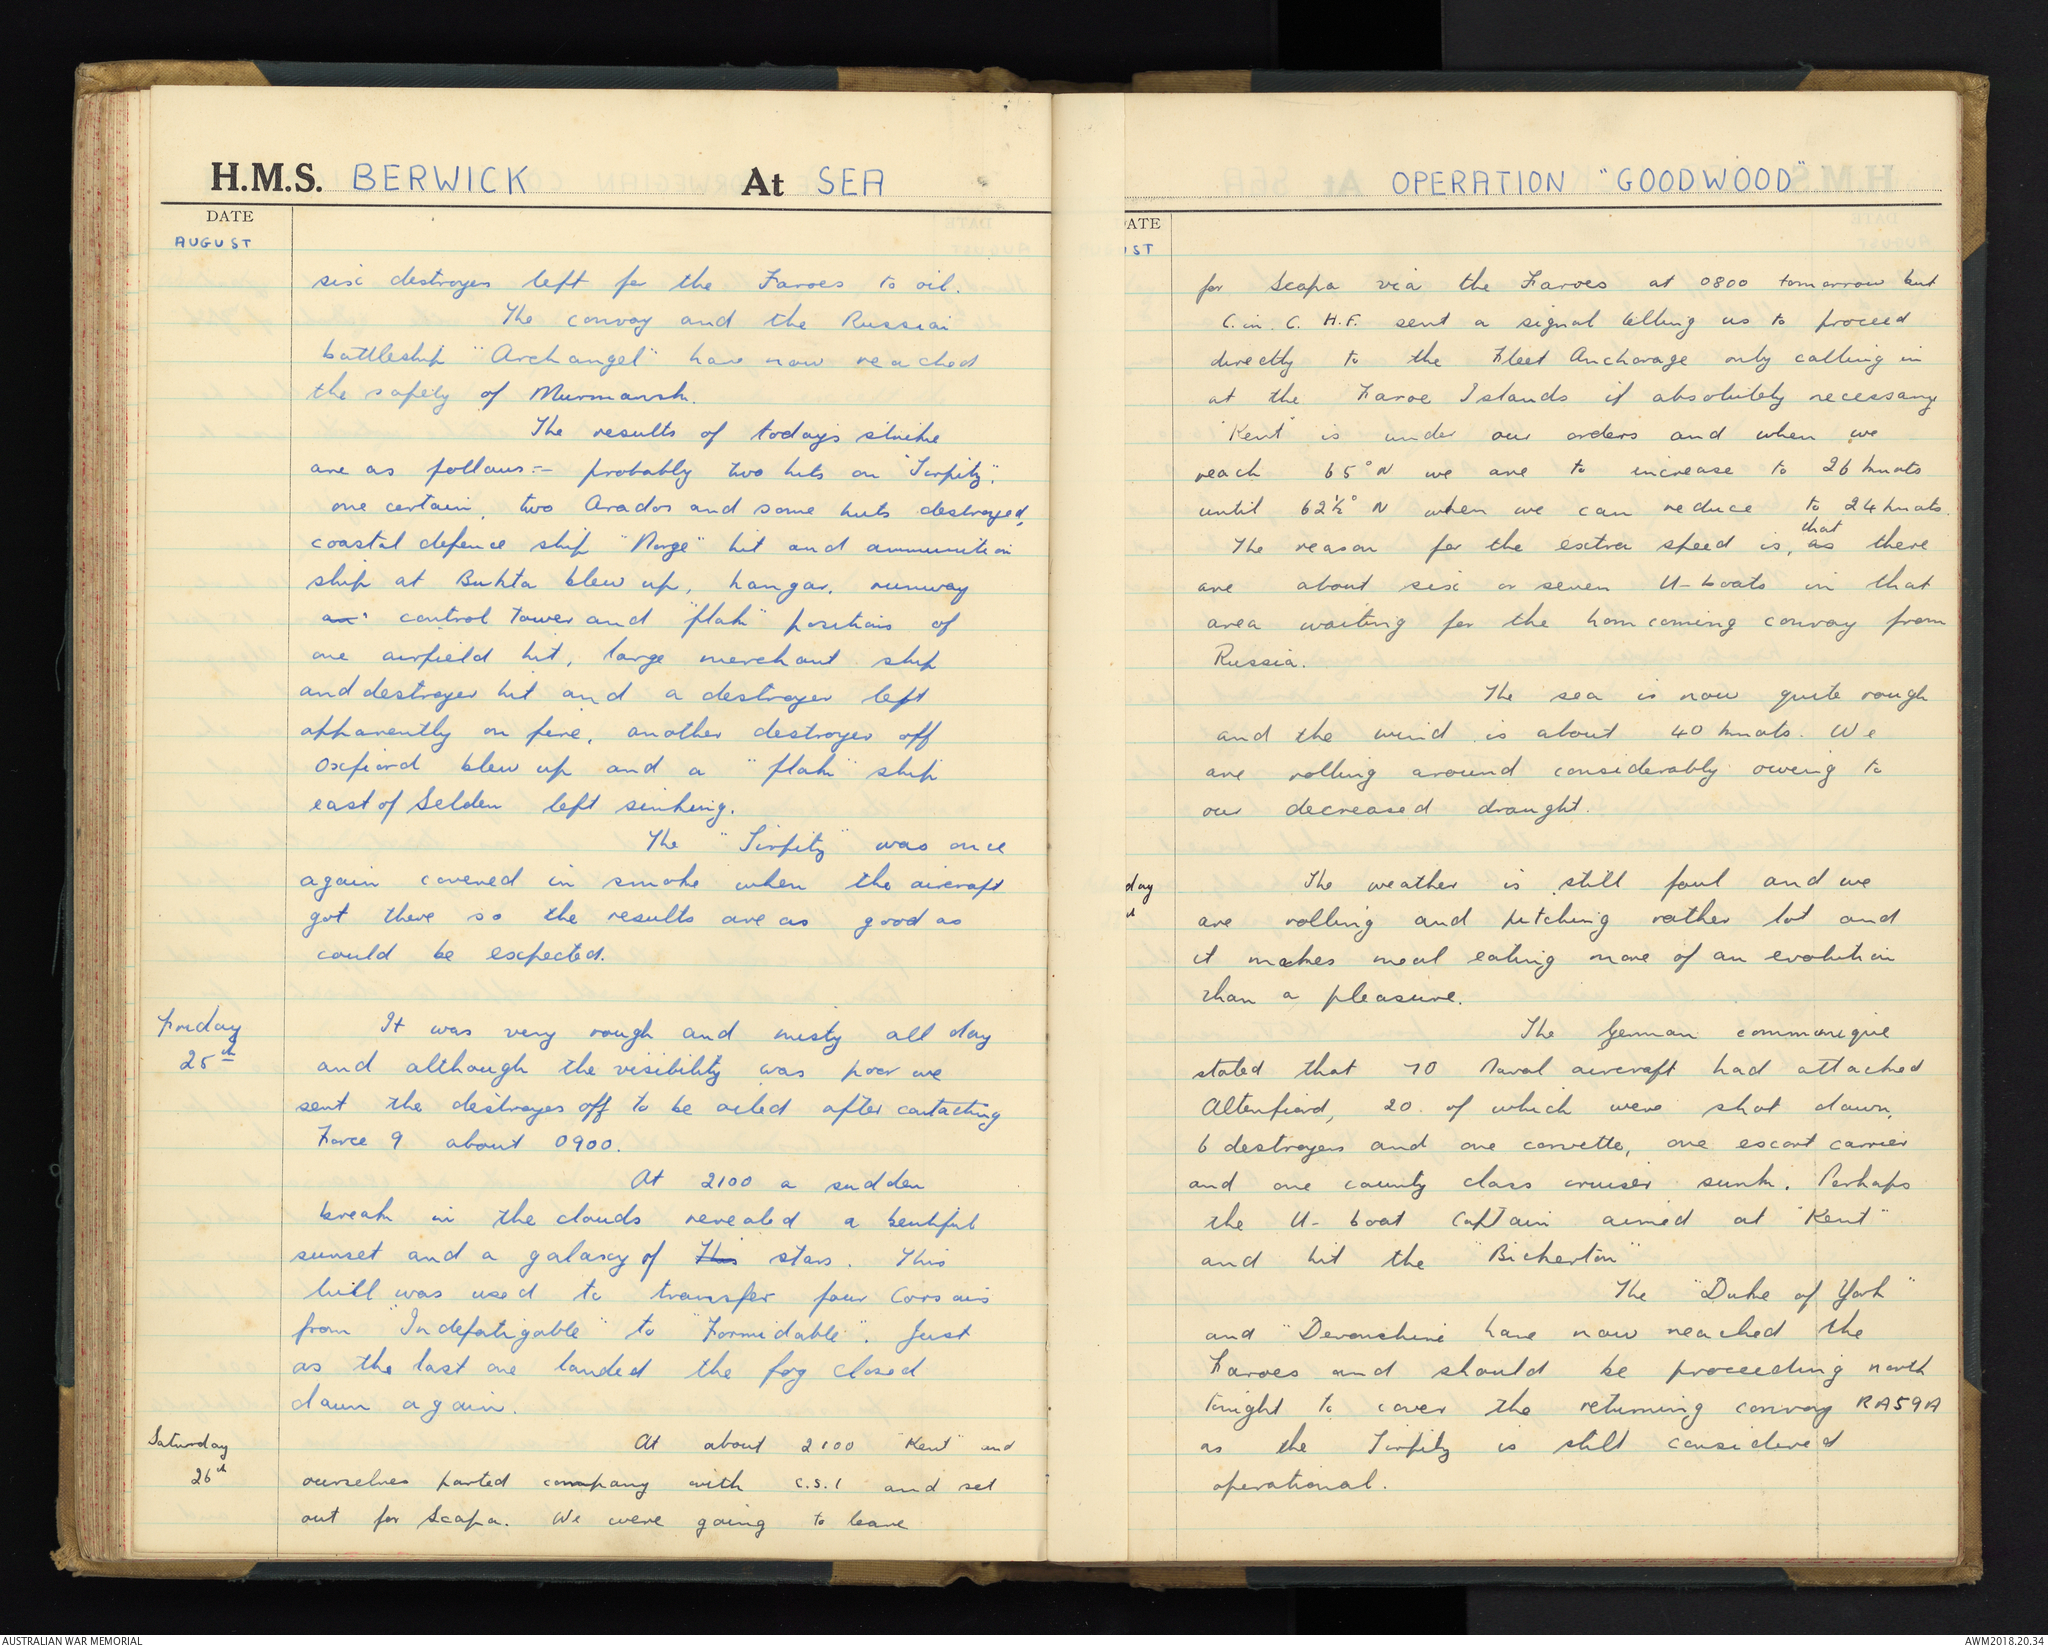 H.M.S. BERWICK At SEA
DATE
AUGUST
six destroyers left for the Faroes to oil.
The convoy and the Russian
battleship "Archangel" have now reached
the safety of Murmansk.
The results of todays strike
are as follows:- probably two hits on "Tirpitz",
one certain, two Arados and some huts destroyed,
coastal defence ship "Norge" hit and ammunition
ship at Bukta blew up, hangar, runway
control tower and "flak" positions of
one airfield hit, large merchant ship
and destroyer hit and a destroyer left
apparently on fire, another destroyer off
Oxfiord blew up and a "flak" ship
east of Selden left sinking.
The "Tirpitz" was once
again covered in smoke when the aircraft
got there so the results are as good as
could be expected.
Friday
25th
It was very rough and misty all day
and although the visibility was poor we
sent the destroyers off to be oiled after contacting
Force 9 about 0900.
At 2100 a sudden
break in the clouds revealed a beutiful
sunset and a galaxy of This stars. This
lull was used to transfer four Corsairs
from "Indefatigable" to "Formidable". Just
as the last one landed the fog closed
down again.
Saturday
26th
At about 2100 "Kent" and
ourselves parted company with C.S.1 and set
out for Scapa. We were going to leave
OPERATION "GOODWOOD"
ATE
ST
for Scapa via the Faroes at 0800 tomorrow but
C. in. C. H.F. sent a signal telling us to proceed
directly to the Fleet Anchorage only calling in
at the Faroe Islands if absolutely necessary
"Kent" is under our orders and when we
reach 65°N we are to increase to 26 knots
until 62½° N when we can reduce to 24 knots.
The reason for the extra speed is, as that there
are about six or seven U-boats in that
area waiting for the homcoming convoy from
Russia.
The sea is now quite rough
and the wind is about 40 knots. We
are rolling around considerably owing to
our decreased draught.
day
The weather is still foul and we
are rolling and pitching rather lot and
it makes meal eating more of an evolution
than a pleasure.
The German communique
stated that 70 Naval aircraft had attacked
Altenfiord, 20 of which were shot down,
6 destroyers and one corvette, one escort carrier
and one county class cruiser sunk. Perhaps
the U-boat Captain aimed at "Kent"
and hit the "Bickerton"
The "Duke of York"
and "Devonshire have now reached the
Faroes and should be proceeding north
tonight to cover the returning convoy RA59A
as the Tirpitz is still considered
operational.
AUSTRALIAN WAR MEMORIAL
AWM2018.20.34